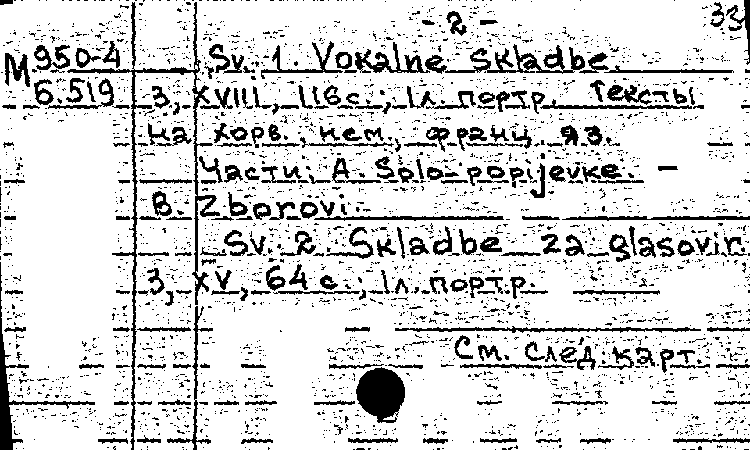 - 2 -
33
М 950-4
6.519
Sv. 1. Vokalne skladbe.
3, XVIII, 116 с.; 1л. портр. Тексты
на хорв., нем., франц. яз.
Части: A. Solo-popijevke. –
B. Zborovi.
Sv. 2. Skladbe za glasovir.
3, XV, 64 с.; 1л. портр.
См. след. карт.